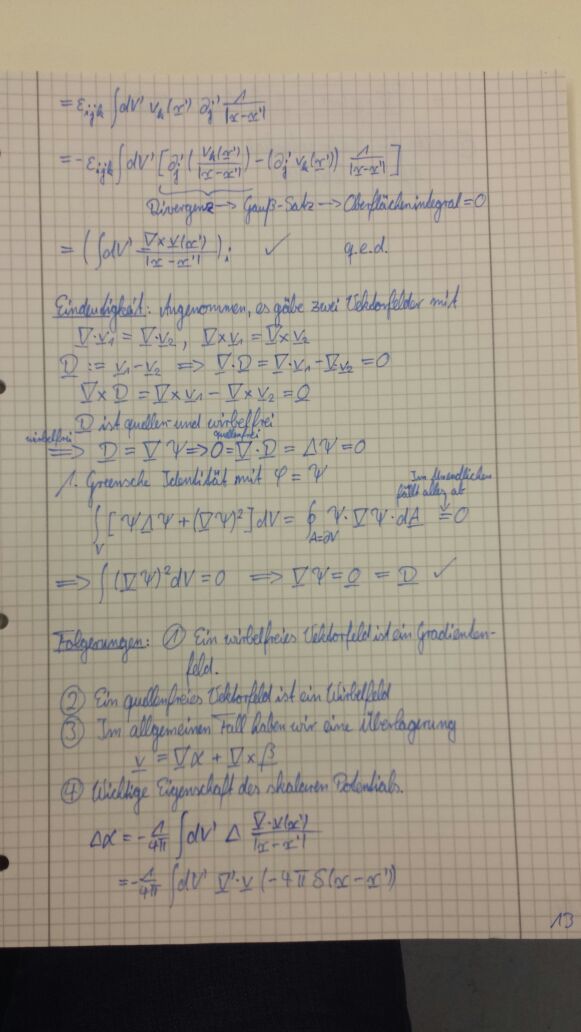 = ε_ijk ∫dV' v_k(x') ∂_j' 1/|x-x'|
= -ε_ijk ∫dV' [∂_j' (v_k(x')/|x-x'|) - (∂_j' v_k(x')) 1/|x-x'|]
Divergenz → Gauß-Satz → Oberflächenintegral = 0
= (∫dV' ∇×v(x')/|x-x'|)_i ✓ q.e.d.
Eindeutigkeit: Angenommen, es gäbe zwei Vektorfelder mit
∇·v₁ = ∇·v₂, ∇×v₁ = ∇×v₂
D := v₁-v₂ ⟹ ∇·D = ∇·v₁-∇·v₂ = 0
∇×D = ∇×v₁ - ∇×v₂ = 0
D ist quellen und wirbelfrei
wirbelfrei quellenfrei
⟹ D = ∇Ψ ⟹ 0 = ∇·D = ΔΨ = 0
1. Greensche Identität mit φ = Ψ
Im Unendlichen
fällt alles ab
∫_V [ΨΔΨ + (∇Ψ)²]dV = ∮_A=∂V Ψ·∇Ψ·dA = 0
⟹ ∫(∇Ψ)²dV = 0 ⟹ ∇Ψ = 0 = D ✓
Folgerungen: ① Ein wirbelfreies Vektorfeld ist ein Gradienten-
feld.
② Ein quellenfreies Vektorfeld ist ein Wirbelfeld
③ Im allgemeinen Fall haben wir eine Überlagerung
v = ∇α + ∇×β
④ Wichtige Eigenschaft des skalaren Potentials.
Δα = -1/4π ∫dV' Δ ∇·v(x')/|x-x'|
= -1/4π ∫dV' ∇'·v (-4π δ(x-x'))
13